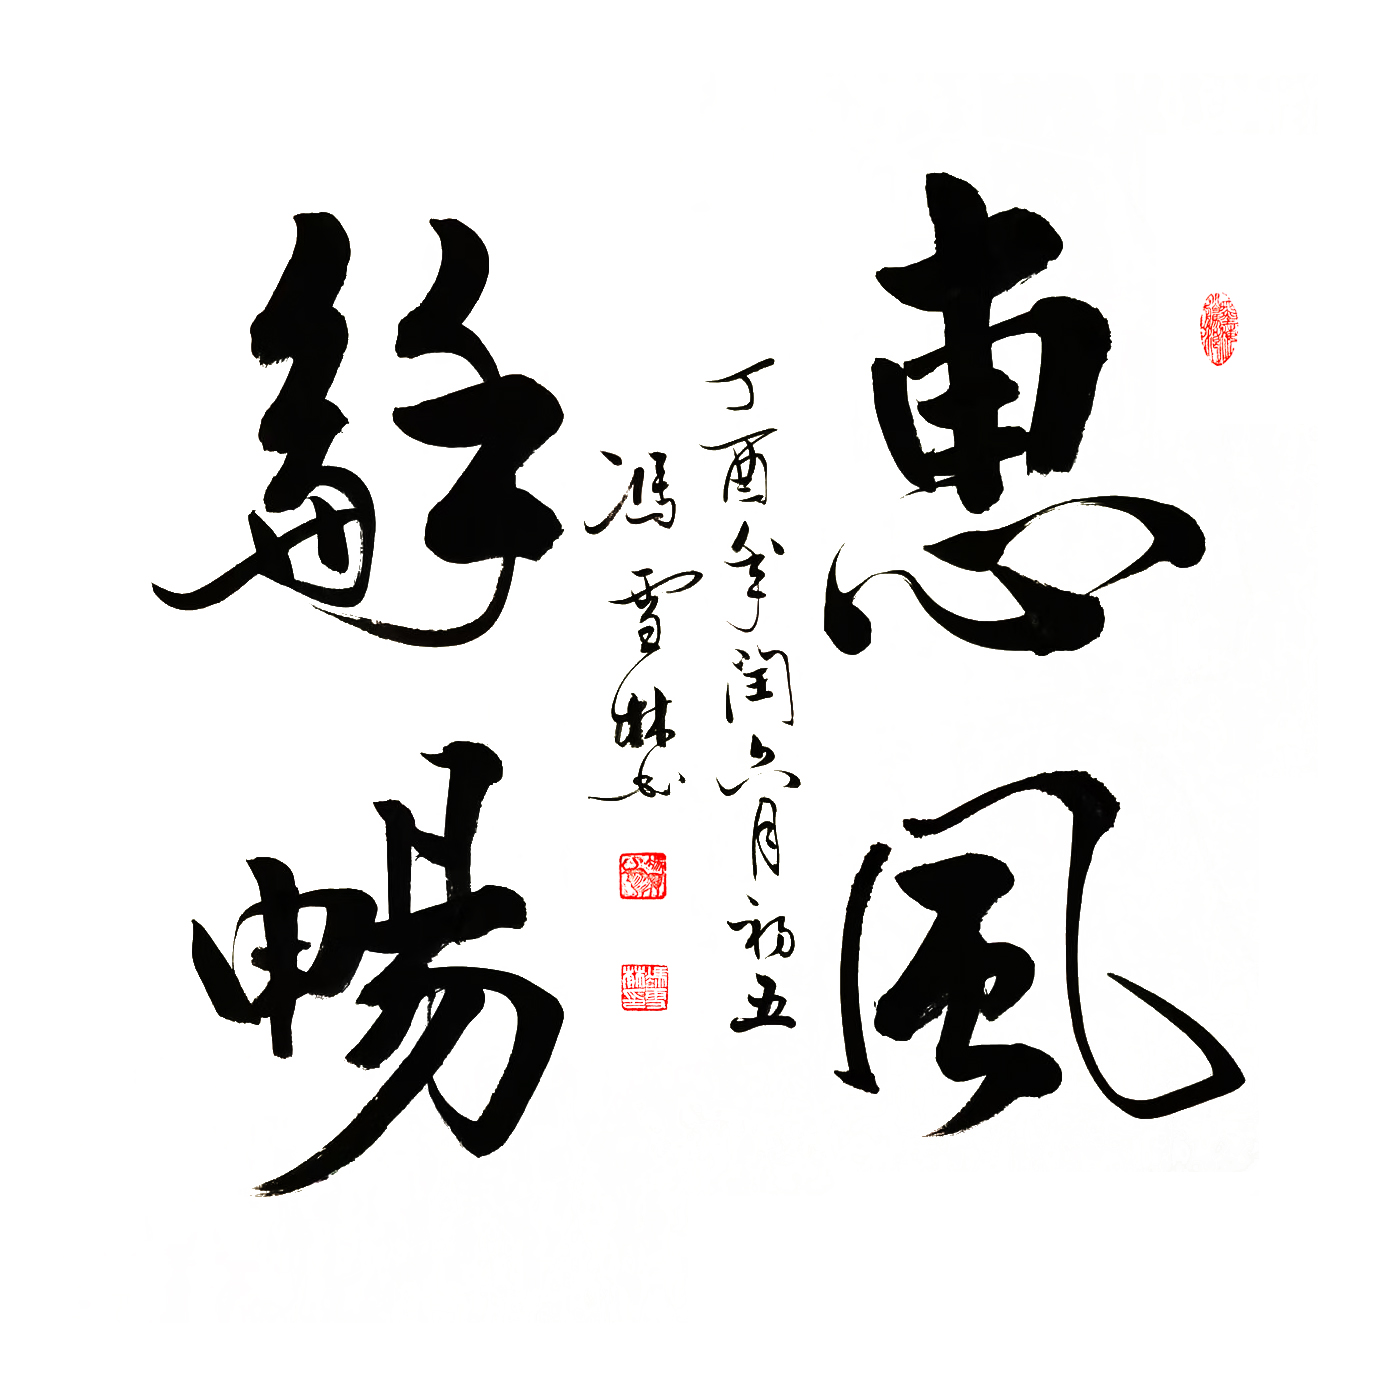 惠風
龢暢
丁酉年闰六月初五
馮雪林书